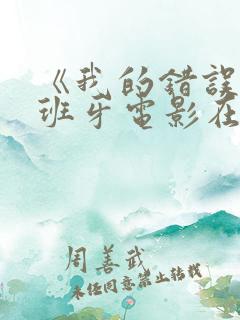 《我的错误
班牙电影在
周善武
未经同意禁止转载